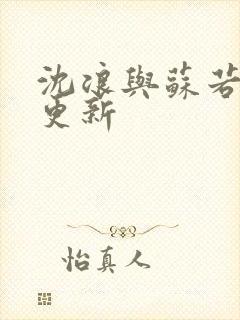 沈浪與蘇若
更新
怡真人